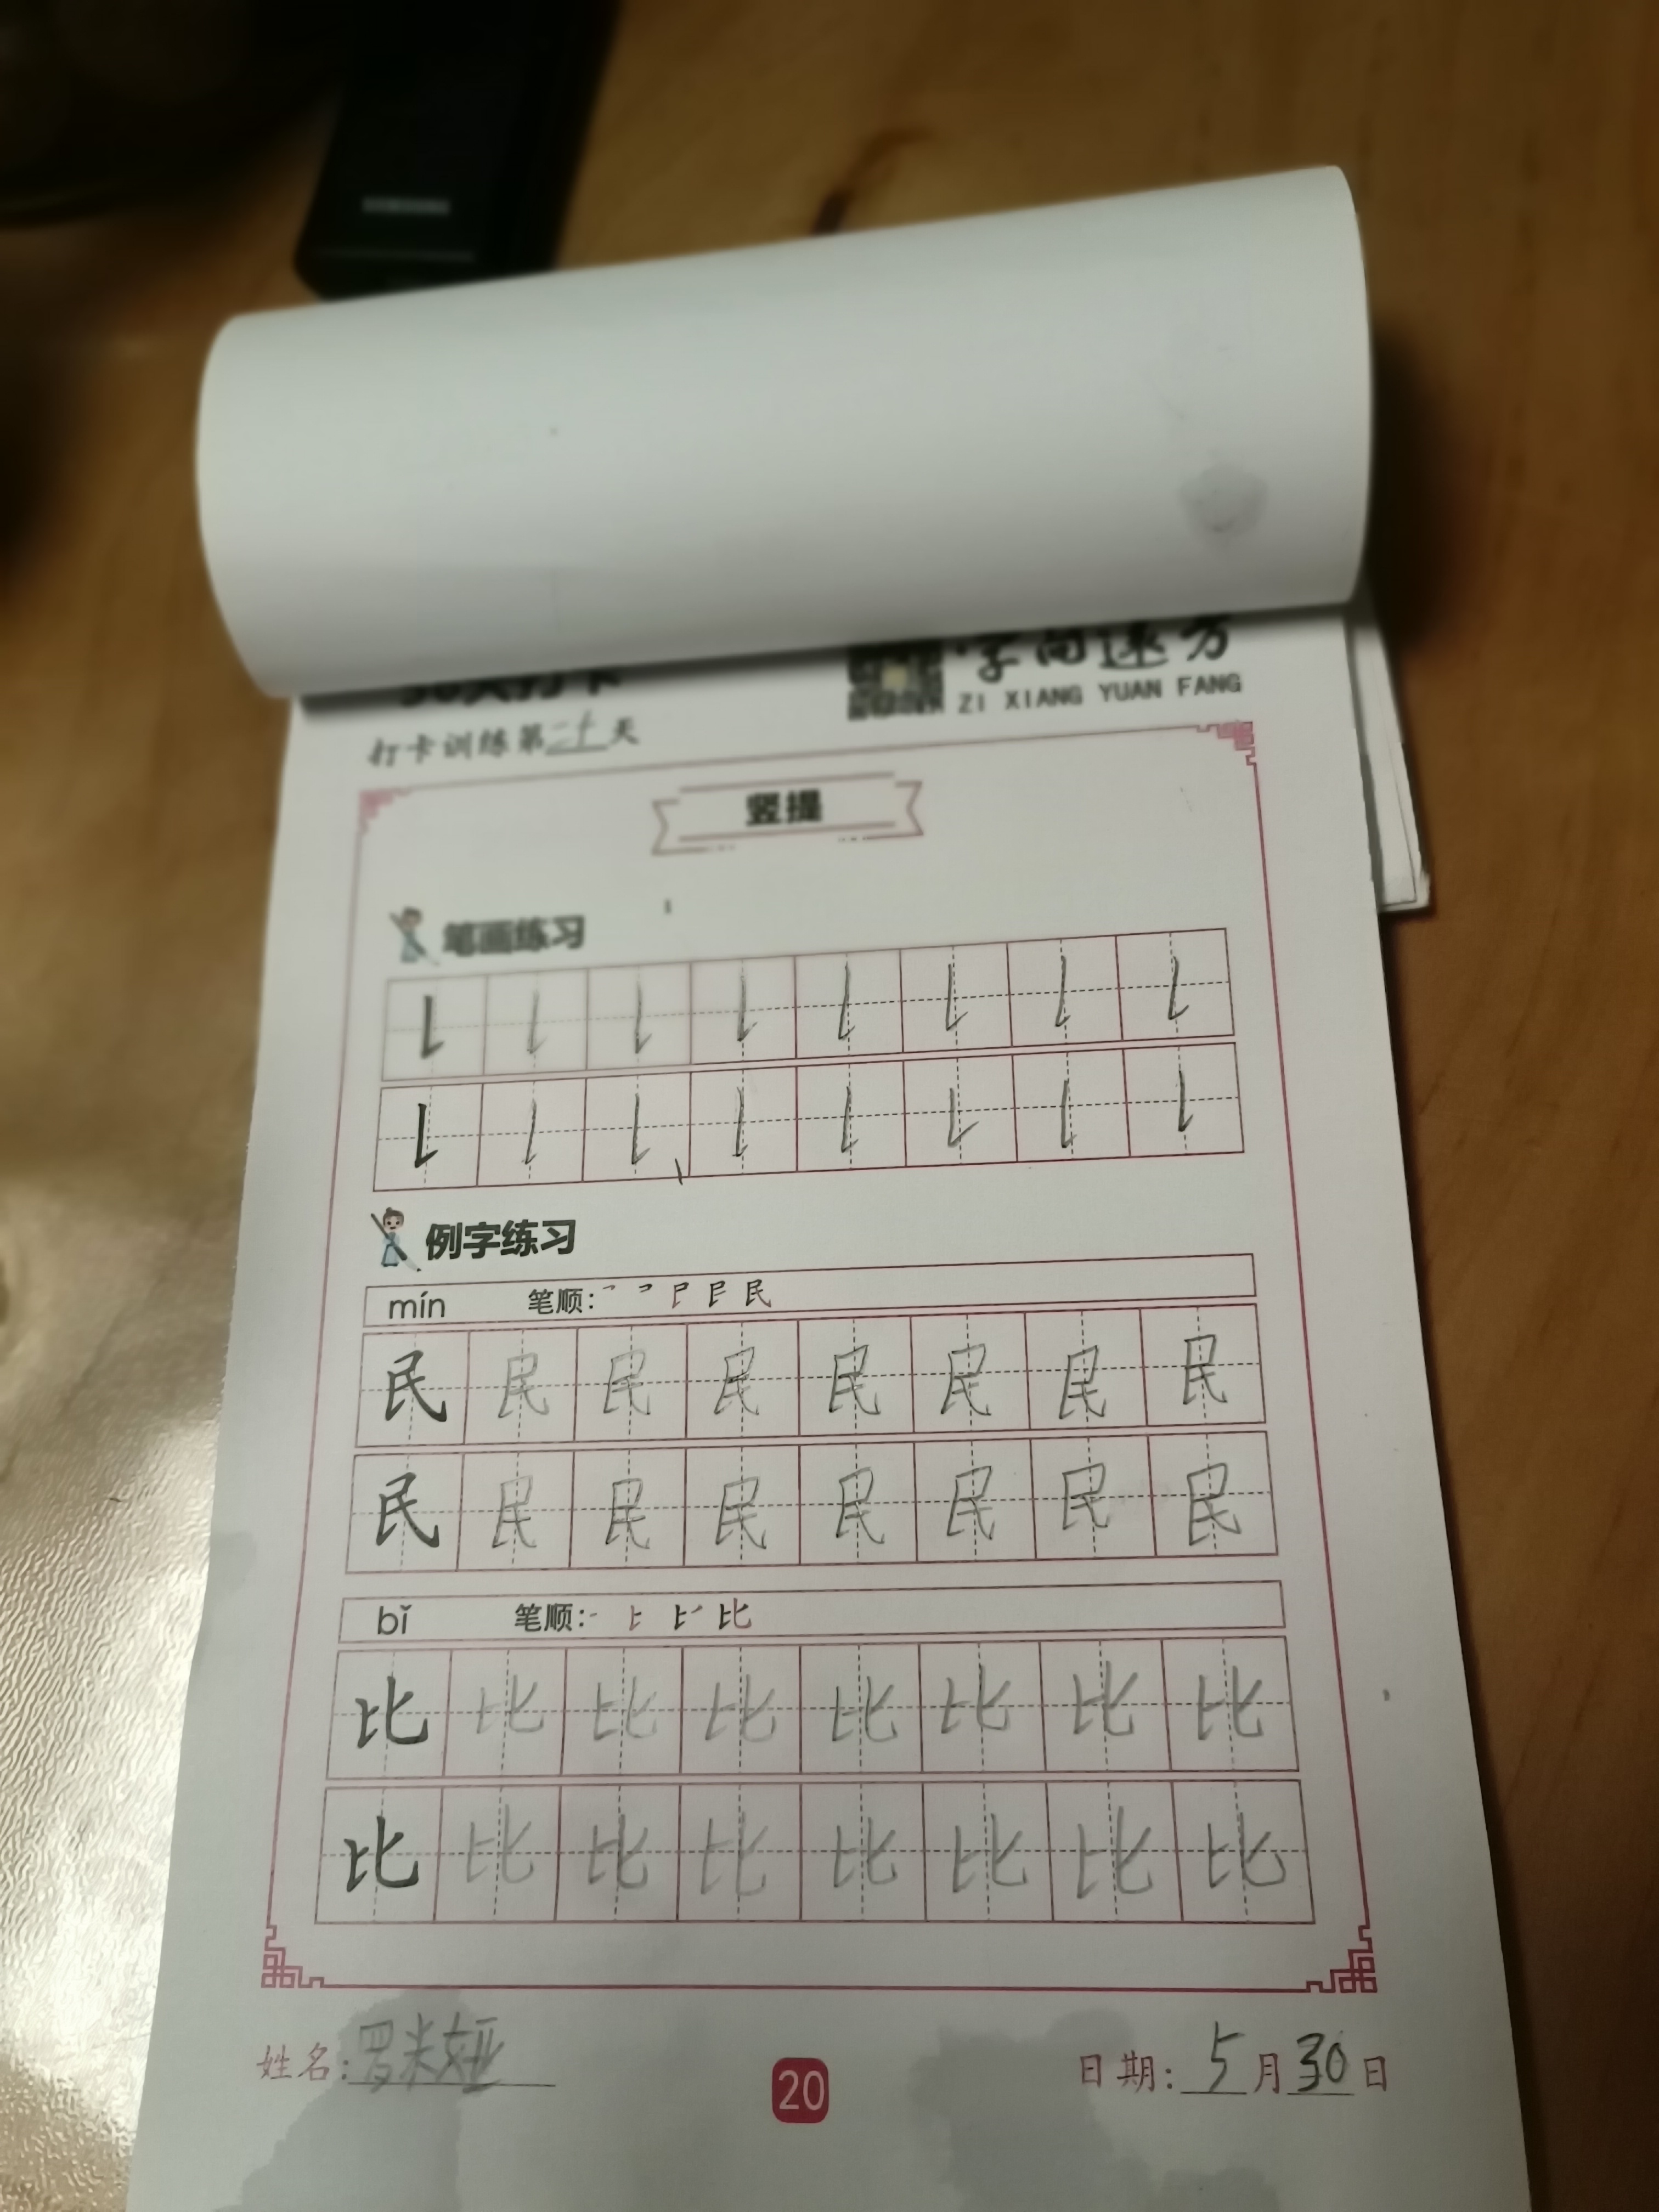 字向速方
ZI XIANG YUAN FANG
打卡训练第二十天
竖提
笔画练习
例字练习
mín 笔顺:
民 民 民 民 民 民 民 民
民 民 民 民 民 民 民 民
bǐ 笔顺: 比
比 比 比 比 比 比 比 比
比 比 比 比 比 比 比 比
姓名:罗米娅 20 日期:5月30日